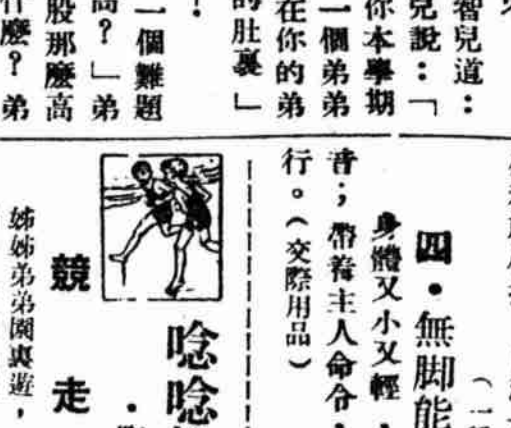 智兒道：
兒說：「
你本學期
一個弟弟
在你的弟
的肚裏」
？
一個難題
高？」弟
股那麼高
什麼？弟
四•無脚能
身體又小又輕，
音；帶着主人命令，
行。（交際用品）
唸唸
競走
姊姊弟弟園裏遊，